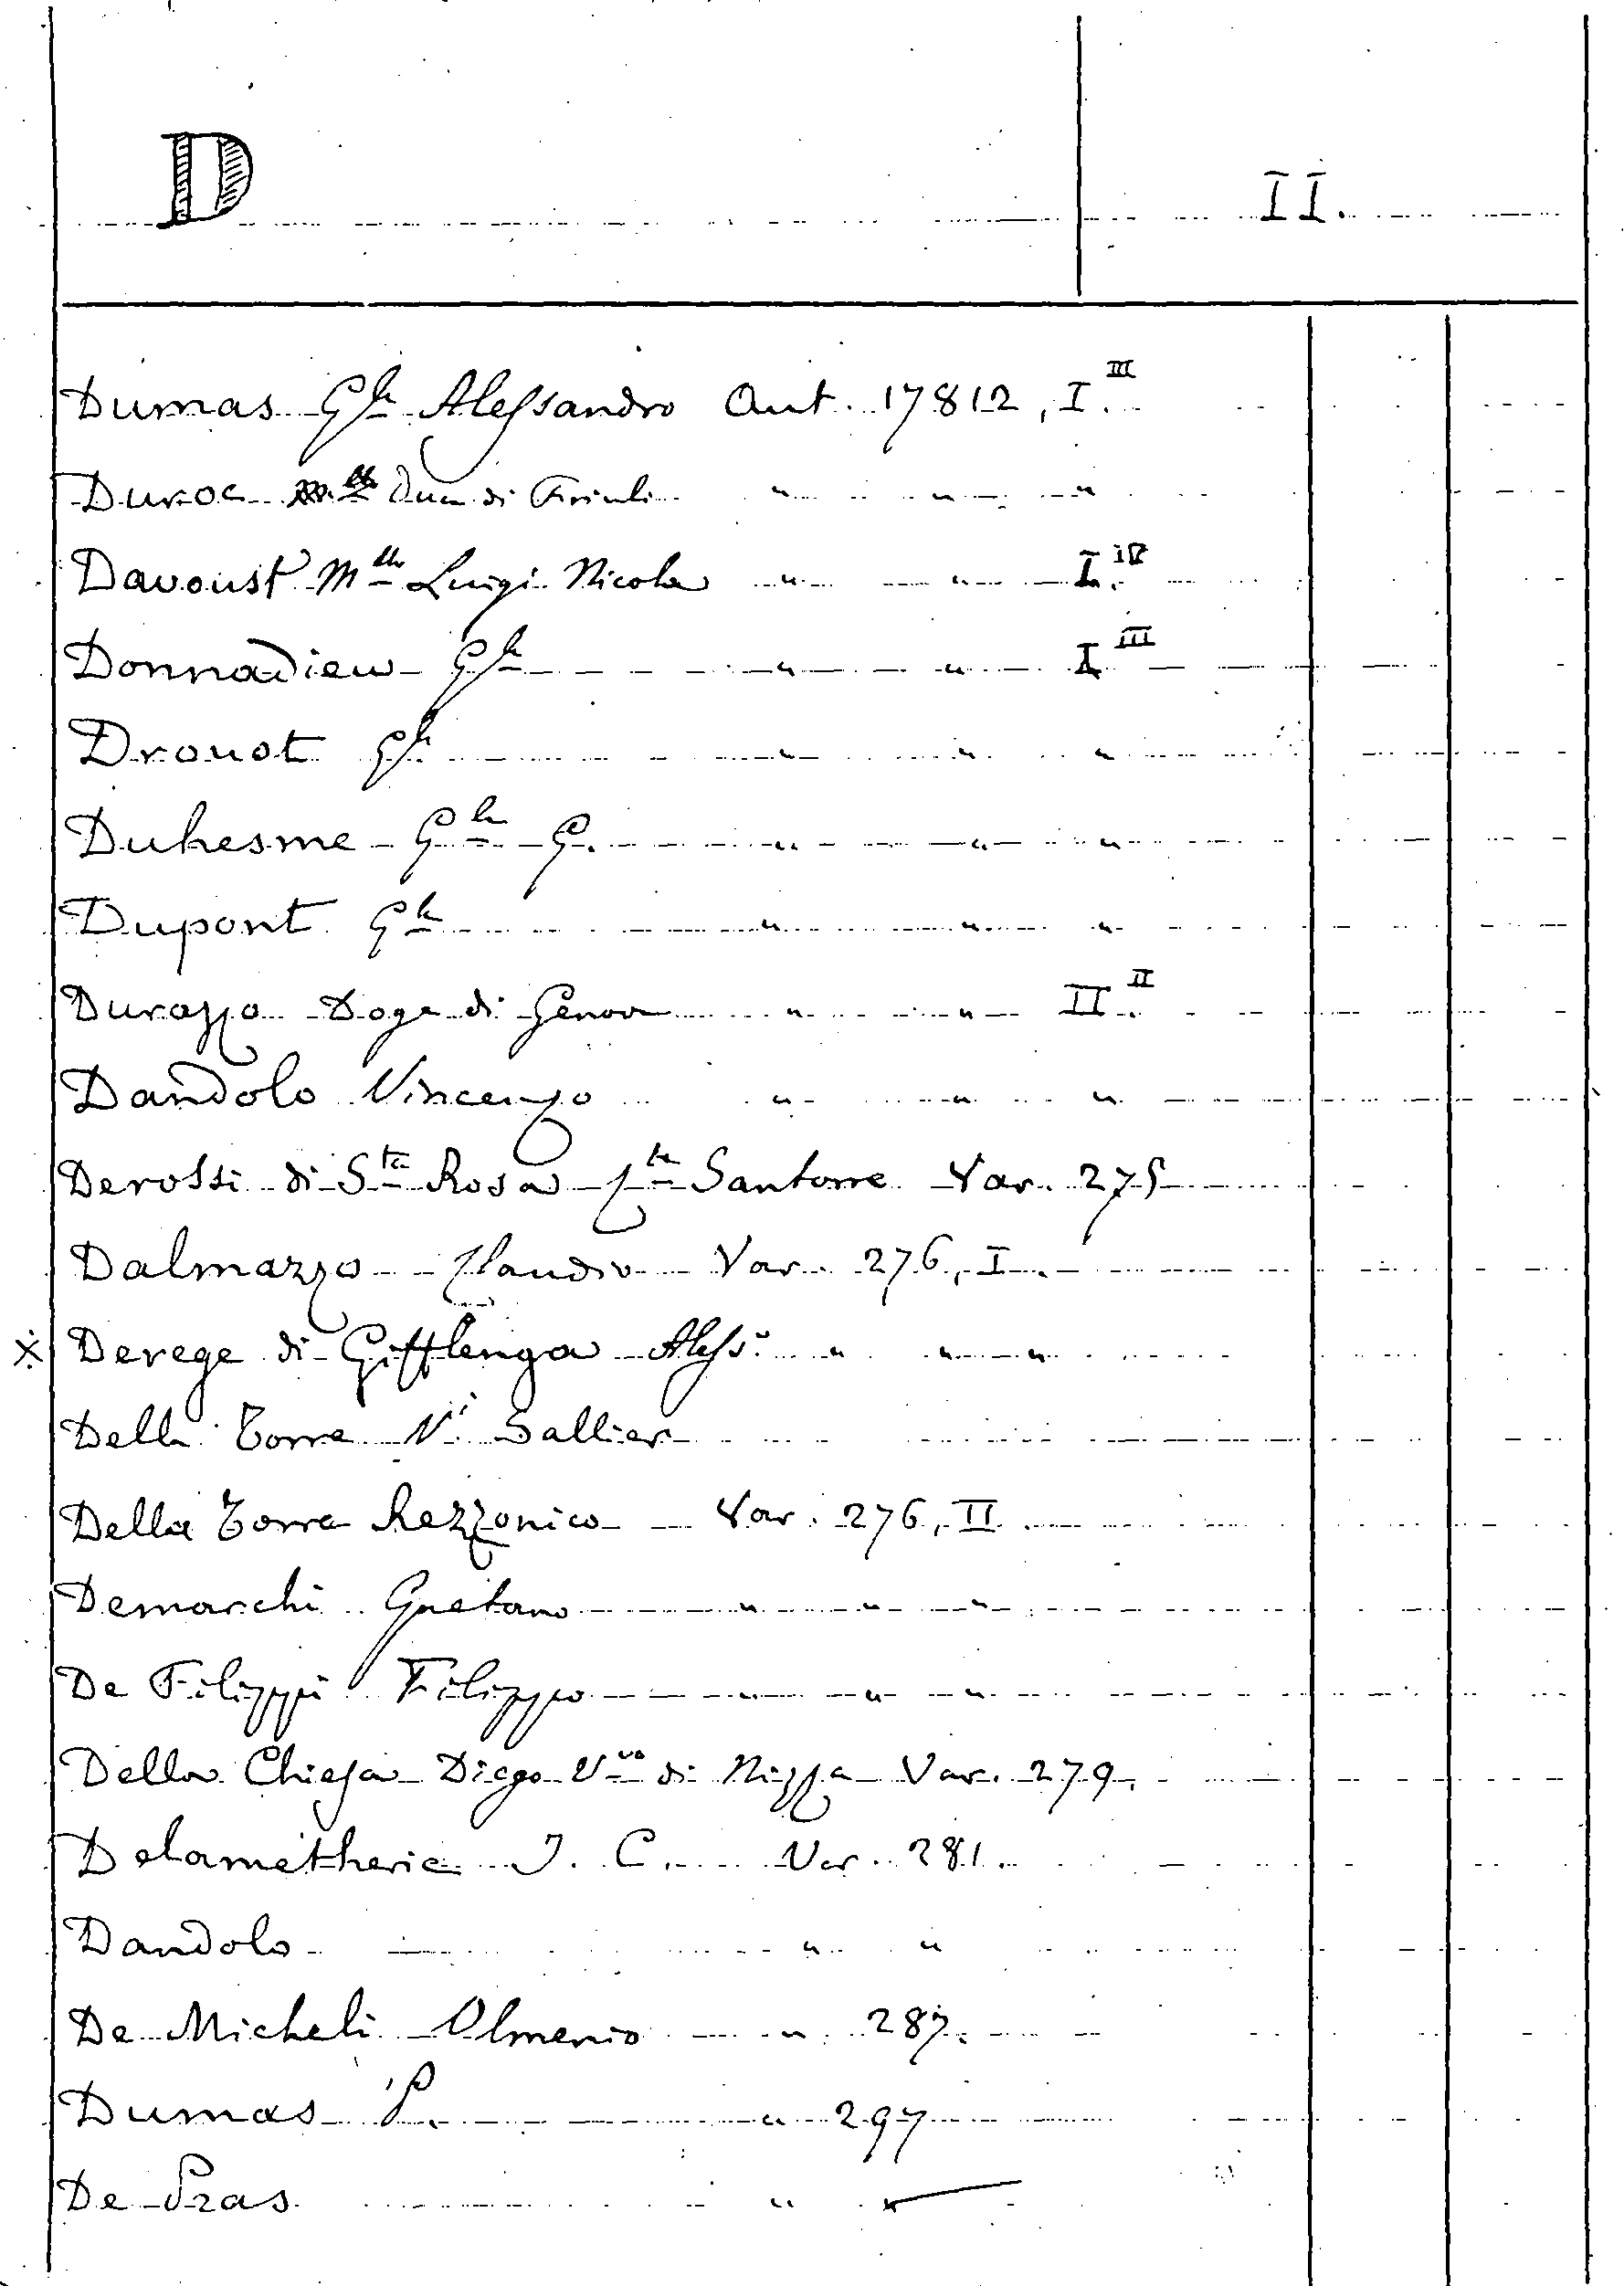 D II.
Dumas Gle Alessandro Aut. 17812, I. III
Duroc Duca di Friuli " " "
Davoust Mllo Luigi Nicola " " I. IV
Donnadieu Gle " " I III
Drouot Gle " " "
Duhesme Gle G. " " "
Dupont Gle " " "
Durazzo Doge di Genova " " II. II
Dandolo Vincenzo " " "
Derossi di Sta Rosa Cte Santorre Var. 275
Dalmazzo Claudio Var. 276, I.
Derege di Gifflenga Aless. " " "
Della Torre Vi Sallier
Della Torre Rezzonico Var. 276, II.
Demarchi Gaetano " " "
De Filippi Filippo " " "
Della Chiesa Diego Vvo di Nizza Var. 279.
Delametherie J. C. Var. 281.
Dandolo " "
De Micheli Olmenio " 287.
Dumas P. " 297
De Pras "